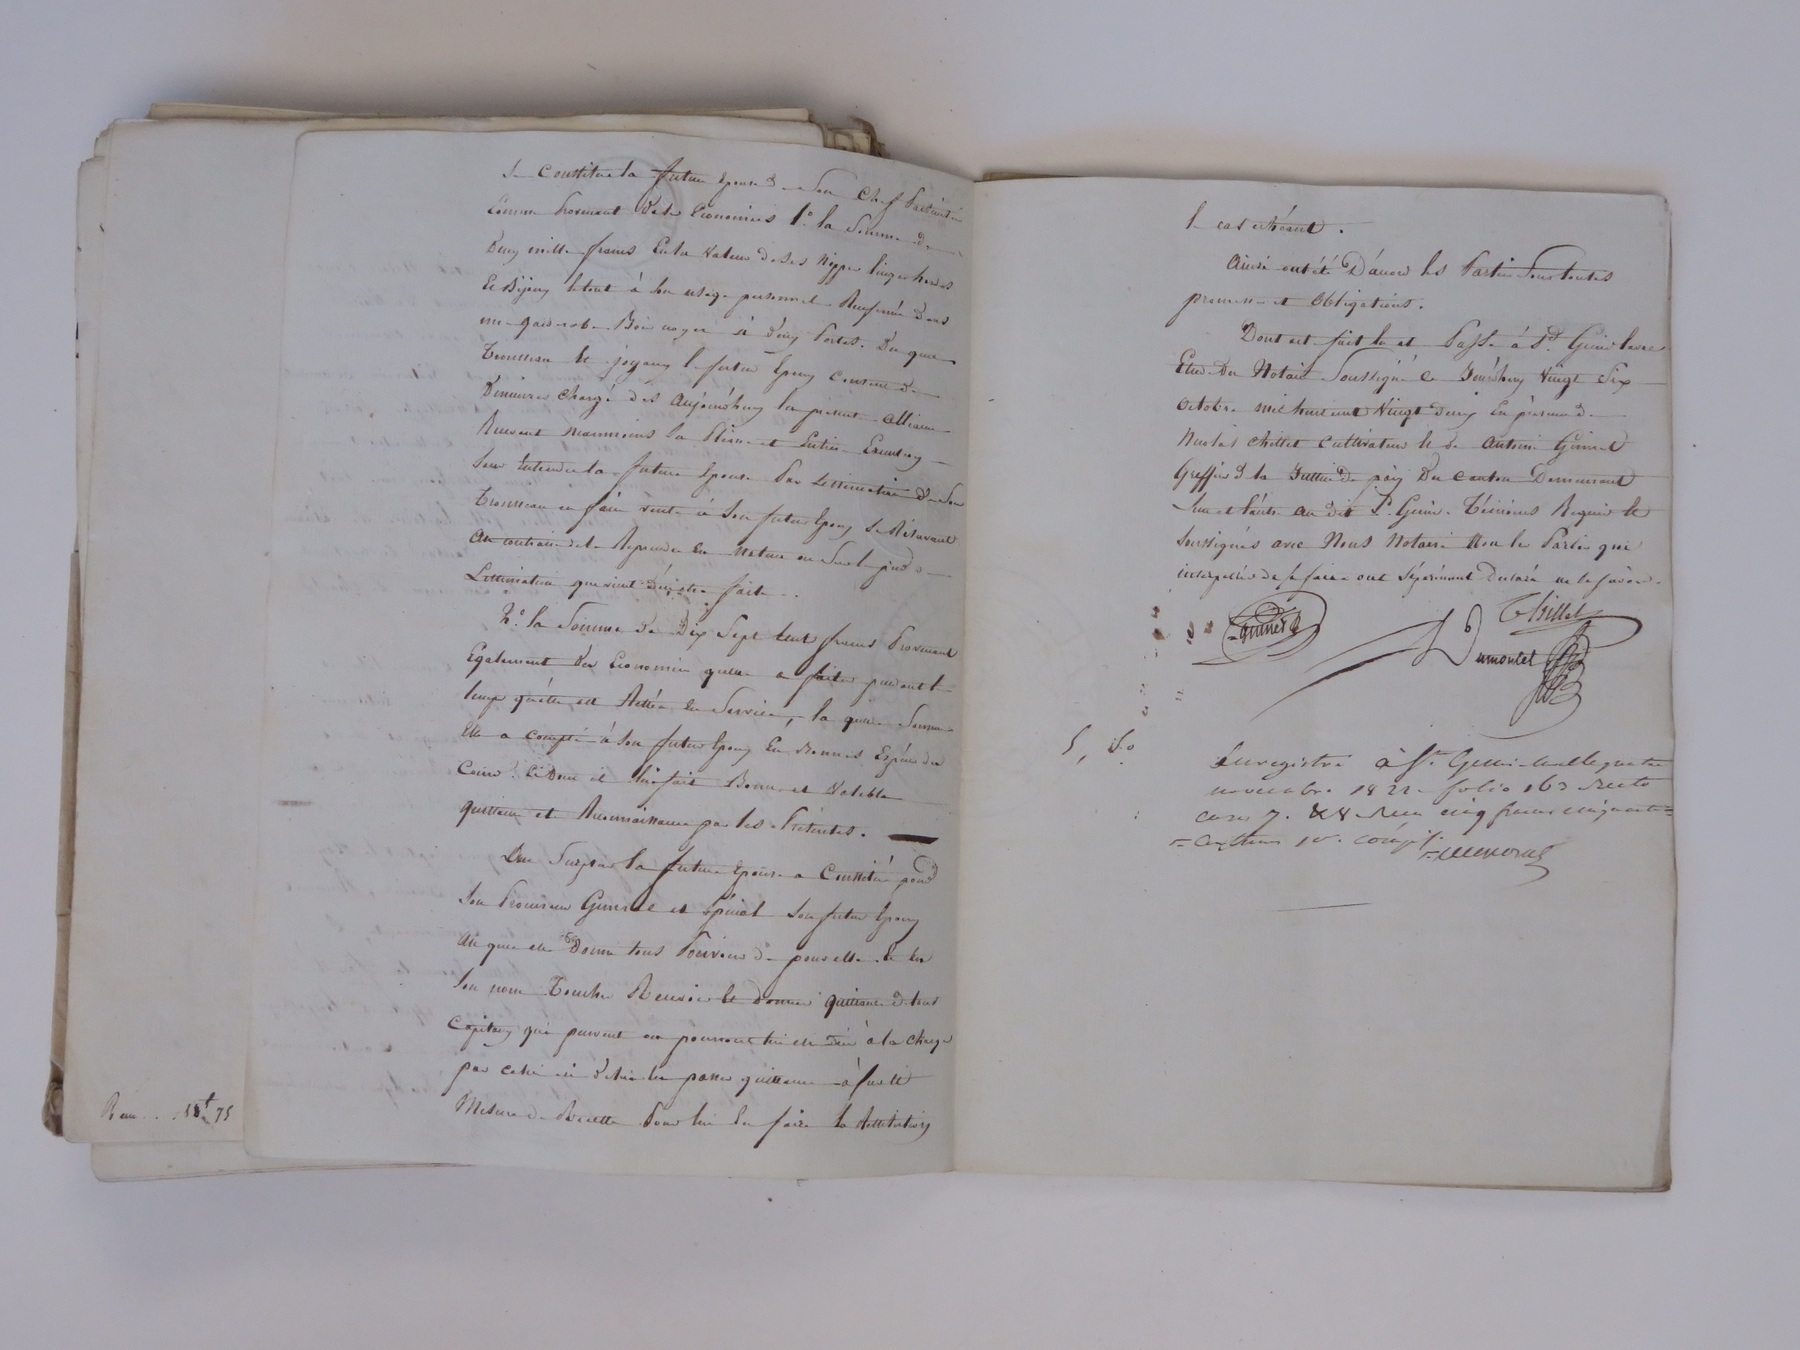 Se Constitue la future Epouse de Son Chef Particulier
Comme Provenant de ses Economies 1.° la Somme de
Deux mille francs En la Valeur de Ses Nippes linges hardes
Et Bijoux le tout à Son usage personnel Renfermé dans
une garderobe Bois noyer à deux Portes. Du quel
Trousseau Et joyaux le futur Epoux Consent de
Demeurer Chargé dès Aujourd'huy la present alliance
Recevant neanmoins Sa Pleine et Entiere Execution
Sans Entendre la future Epouse Par L'estimation de Son
Trousseau en faire vente à Son futur Epoux Se Réservant
Au contraire de le Reprendre En Nature ou Sur le pied de
L'estimation que vient D'être faite.
2.° la Somme de Dix Sept Cent francs Provenant
Egalement des Economies qu'elle a faites pendant le
temps qu'elle est Restée En Service, la quelle Somme
Elle a compté à Son futur Epoux En Bonnes Espèces de
Cours. dont il lui fait Bonne et Valable
quittance et Reconnaissance par les Présentes.
Du Surplus la future Epouse a Constitué pour
Son Procureur General et Spécial Son futur Epoux
Au quel elle Donne tous Pouvoirs de pour elle Et En
Son nom Toucher Recevoir Et donner quittance de tous
Capitaux qui peuvent ou pourront lui etre Dus à la charge
par celui ci d'en passer quittance à fur Et
Mesure de Recette Pour lui En faire la Restitution
R eu . . . 18 t 75
le cas échéant.
Ainsi ont été D'accord les Parties Sous toutes
promesses et Obligations.
Dont est fait lu et Passé à St. Genis laval
Etude Du Notaire Soussigné Ce Jourd'huy Vingt Six
Octobre mil huit cent Vingt deux En présence de
Nicolas Chillet Cultivateur Et de Antoine Guinet
Greffier de la Justice de paix Du Canton Demeurant
L'un et l'autre au dit St. Genis. Témoins Requis Et
Soussignés avec Nous Notaire Non les Parties qui
interpellées de le faire ont Séparément déclaré ne le Savoir.
Guinet
Chillet
Dumontet
5, 50
Enregistré à St. Genis-laval le quatre
novembre 1822 folio 163 recto
case 7. & 8 Reçu cinq francs cinquante
centimes 10.e compris.